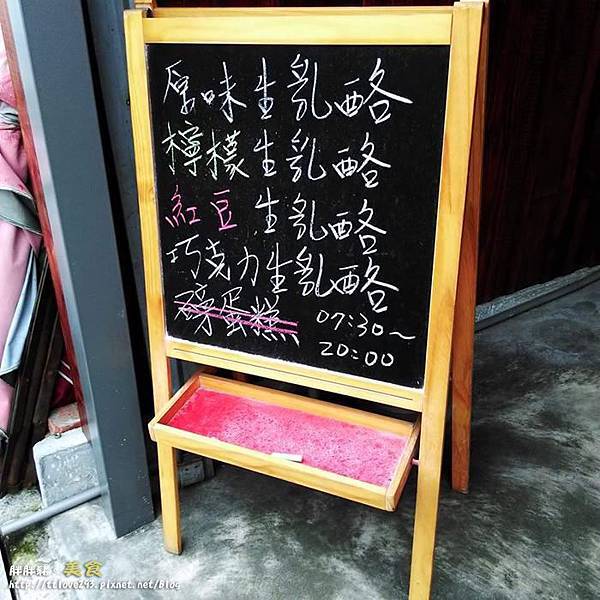 原味生乳酪
檸檬生乳酪
紅豆生乳酪
巧克力生乳酪
蛋糕
07:30~
20:00
胖胖豬 美食
http://ttlove245.pixnet.net/blog